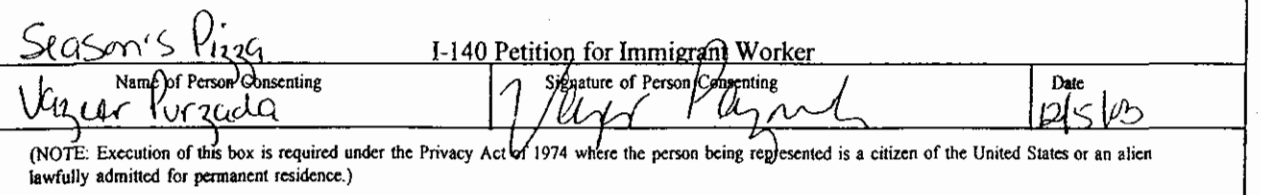 Season's Pizza I-140 Petition for Immigrant Worker
Name of Person Consenting Signature of Person Consenting Date
Purzada 12/5/03
(NOTE: Execution of this box is required under the Privacy Act of 1974 where the person being represented is a citizen of the United States or an alien
lawfully admitted for permanent residence.)